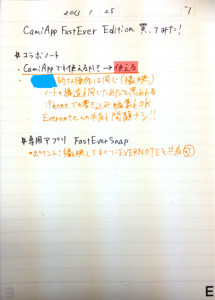 2013 1 25
CamiApp FastEver Edition 買ってみた!
*コラボノート
・CamiAppでも使えるか?→使える
・ 的な操作は同じ(撮影)
ノートの構造も同じためだと思われる
iPhoneでの書き込み編集もOK
Evernoteへの共有も問題ナシ!!
*専用アプリ FastEverSnap
撮影してすぐにEVERNOTEと共有可
E